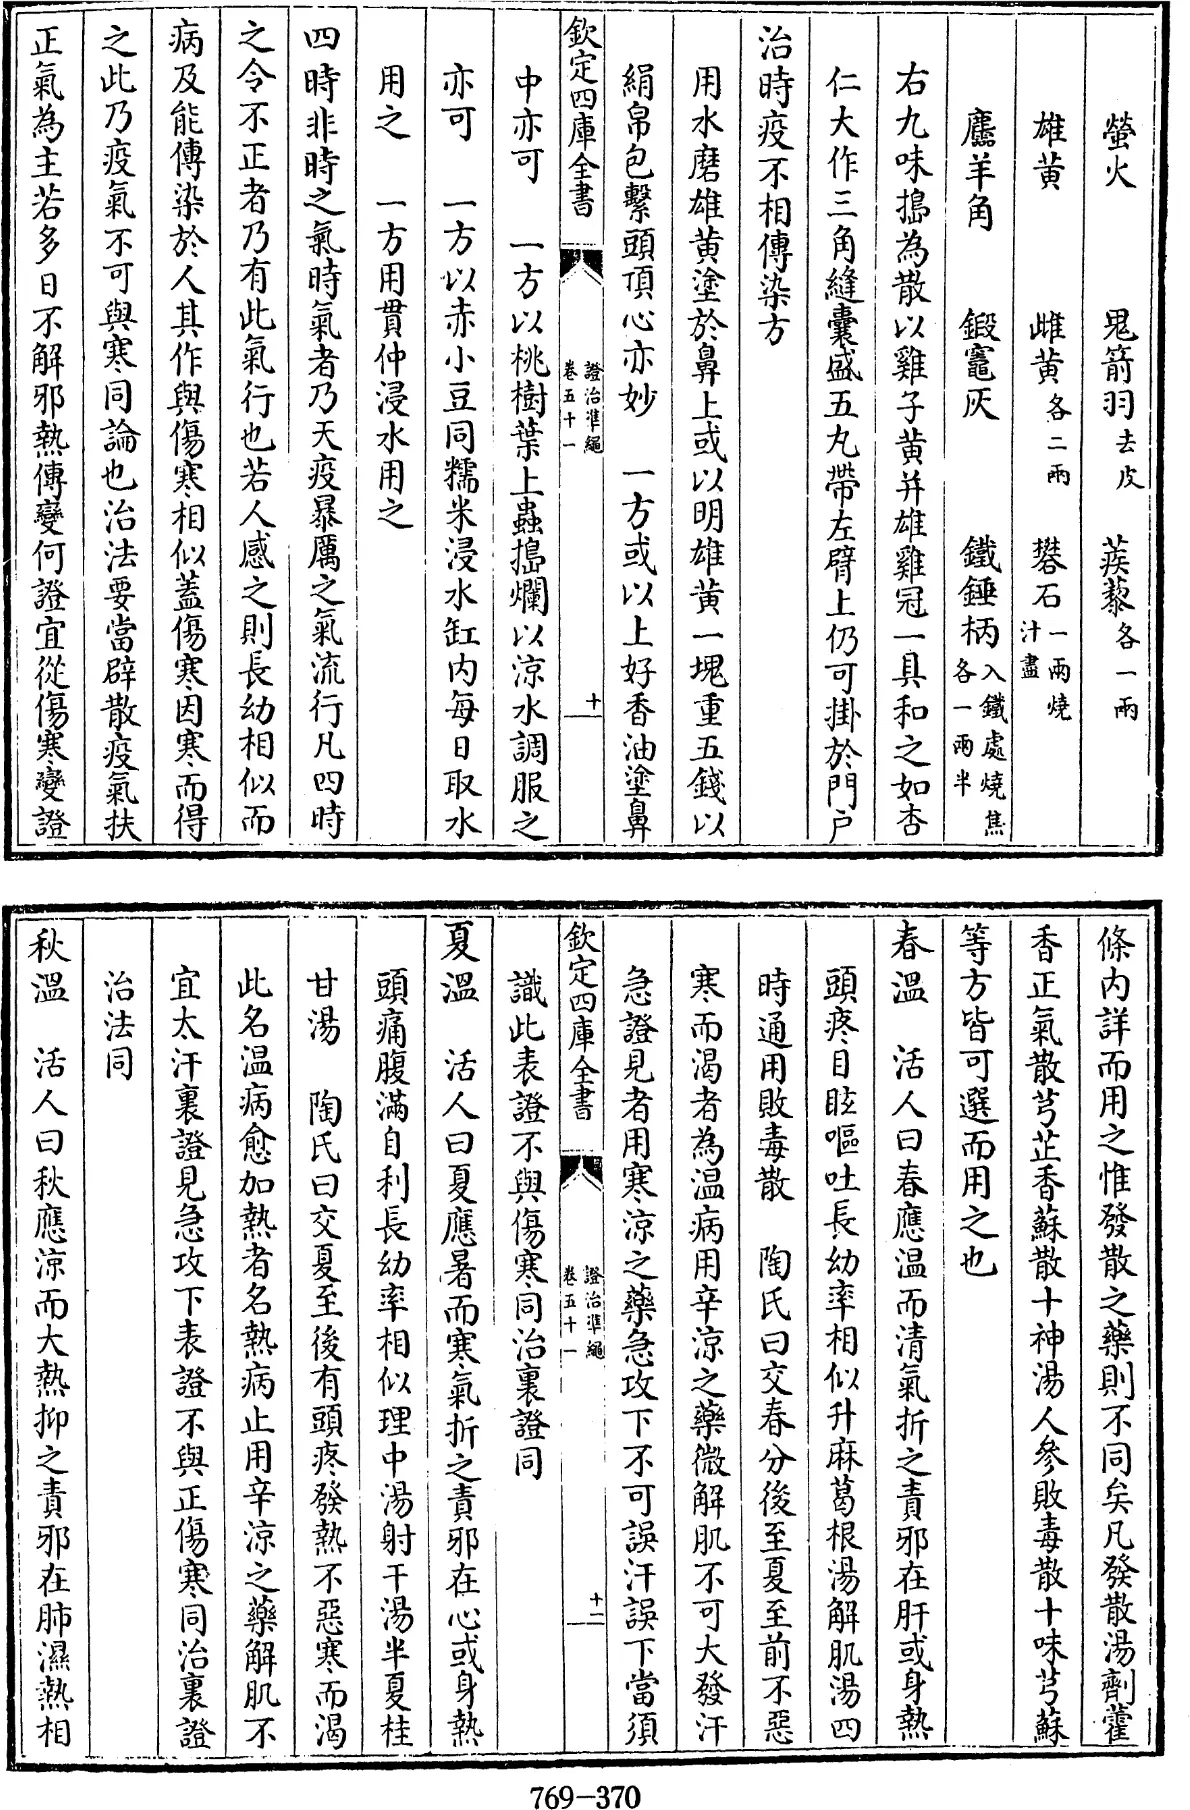 螢火　鬼箭羽去皮　蒺藜各一兩
雄黄　雌黄各二兩　礬石一兩燒汁盡
麢羊角　鍛竈灰　鐵錘柄入鐵處燒焦各一兩半
右九味搗為散以雞子黄并雄雞冠一具和之如杏
仁大作三角縫囊盛五丸帶左臂上仍可掛於門户
治時疫不相傳染方
用水磨雄黄塗於鼻上或以明雄黄一塊重五錢以
絹帛包繫頭頂心亦妙　一方或以上好香油塗鼻
欽定四庫全書　證治準繩卷五十一　十一
中亦可　一方以桃樹葉上蟲搗爛以涼水調服之
亦可　一方以赤小豆同糯米浸水缸内每日取水
用之　一方用貫仲浸水用之
四時非時之氣時氣者乃天疫暴厲之氣流行凡四時
之令不正者乃有此氣行也若人感之則長幼相似而
病及能傳染於人其作與傷寒相似蓋傷寒因寒而得
之此乃疫氣不可與寒同論也治法要當辟散疫氣扶
正氣為主若多日不解邪熱傳變何證宜從傷寒變證
條内詳而用之惟發散之藥則不同矣凡發散湯劑藿
香正氣散芎芷香蘇散十神湯人參敗毒散十味芎蘇
等方皆可選而用之也
春温　活人曰春應温而清氣折之責邪在肝或身熱
頭疼目眩嘔吐長幼率相似升麻葛根湯解肌湯四
時通用敗毒散　陶氏曰交春分後至夏至前不惡
寒而渴者為温病用辛涼之藥微解肌不可大發汗
急證見者用寒涼之藥急攻下不可誤汗誤下當須
欽定四庫全書　證治準繩卷五十一　十二
識此表證不與傷寒同治裏證同
夏温　活人曰夏應暑而寒氣折之責邪在心或身熱
頭痛腹滿自利長幼率相似理中湯射干湯半夏桂
甘湯　陶氏曰交夏至後有頭疼發熱不惡寒而渴
此名温病愈加熱者名熱病止用辛涼之藥解肌不
宜太汗裏證見急攻下表證不與正傷寒同治裏證
治法同
秋温　活人曰秋應涼而大熱抑之責邪在肺濕熱相
769-370